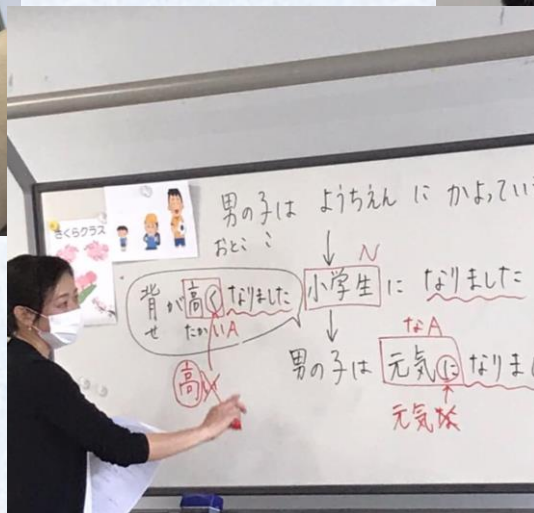 さくらクラス
男の子は ようちえん に かよってい
おとこ こ
N
背が高くなりました
せ たか いA
小学生 に なりました
なA
高い
男の子は 元気に なりまし
元気な